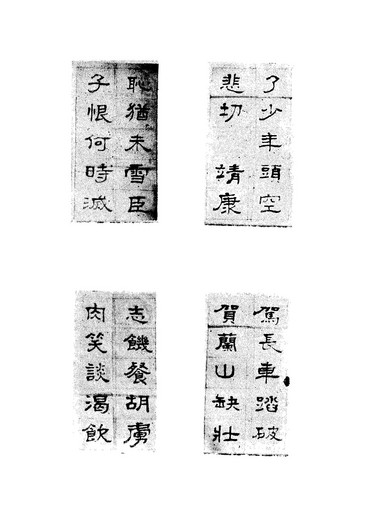 了少年頭空
悲切 靖康
恥猶未雪臣
子恨何時滅
駕長車踏破
賀蘭山缺壯
志饑餐胡虜
肉笑談渴飲